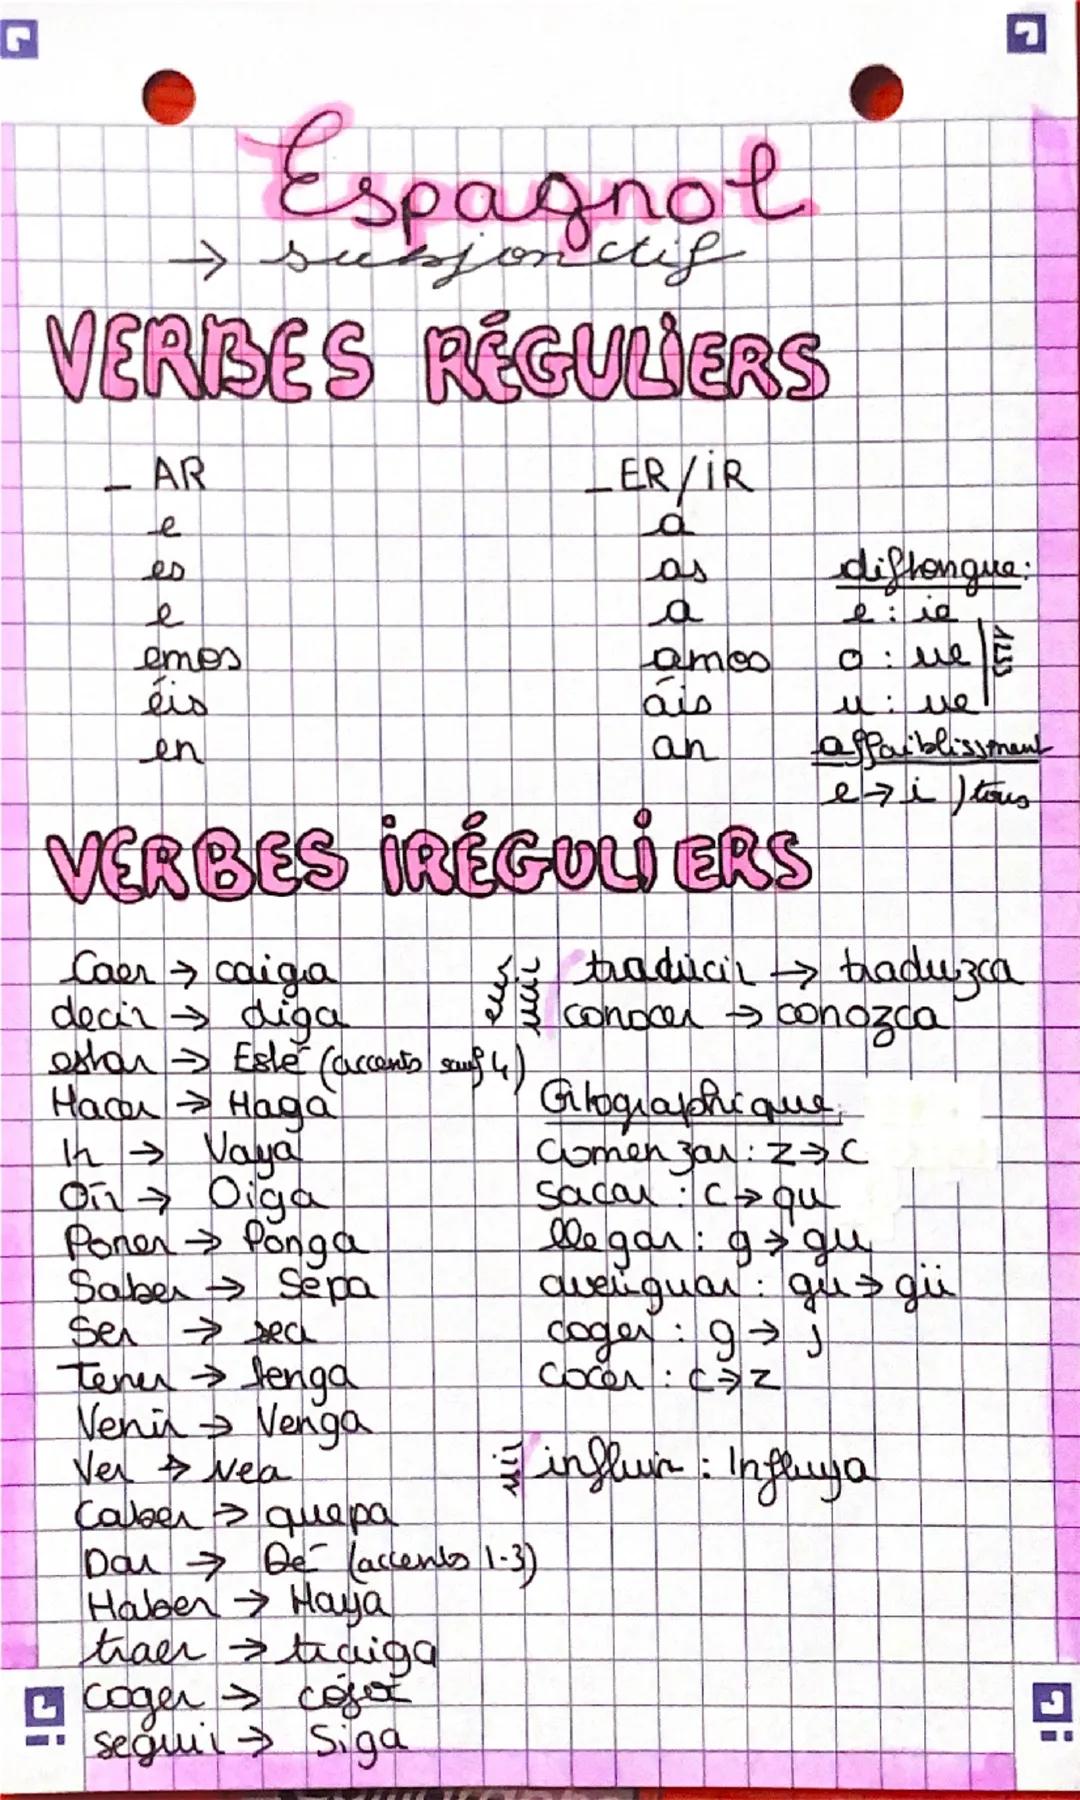 Espagnol
→ subjonctif
VERBES RÉGULIERS
_ AR
e
es
e
emos
éis
en
_ ER/IR
a
as
a
amos
áis
an
diftongue:
e : ie
o : ue
u : ue
affaiblissment
e → i ) tous
VERBES IRÉGULIERS
Caer → caiga
decir → diga
estar → Esté (accents sauf 4)
Hacer → Haga
Ir → Vaya
Oír → Oiga
Poner → Ponga
Saber → Sepa
Ser → sea
Tener → tenga
Venir → Venga
Ver → vea
Caber → quepa
Dar → Dé (accents 1-3)
Haber → Haya
traer → traiga
coger →
seguir → Siga
traducir → traduzca
conocer → conozca
comenzar : z → c
sacar : c → qu
llegar : g → gu
averiguar : gu → gü
coger : g → j
cocer : c → z
uir
influir : Influya